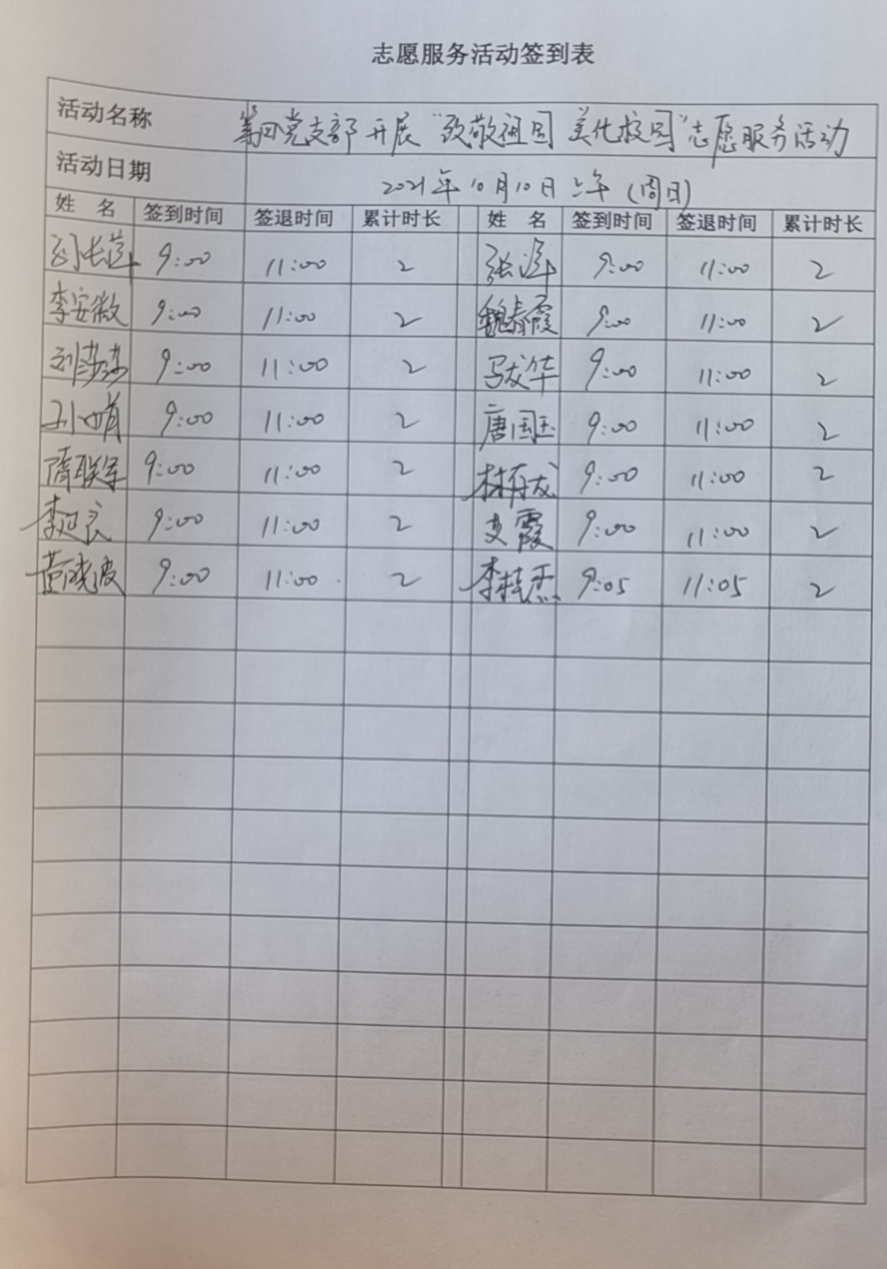 志愿服务活动签到表
活动名称 第四党支部开展“致敬祖国 美化校园”志愿服务活动
活动日期 2021年10月10日上午(周日)
姓名 签到时间 签退时间 累计时长 姓名 签到时间 签退时间 累计时长
9:00 11:00 2 9:00 11:00 2
李安徽 9:00 11:00 2 魏春霞 9:00 11:00 2
刘莎莎 9:00 11:00 2 马成华 9:00 11:00 2
9:00 11:00 2 唐国玉 9:00 11:00 2
隋联军 9:00 11:00 2 林存成 9:00 11:00 2
李延良 9:00 11:00 2 支霞 9:00 11:00 2
黄晓波 9:00 11:00 2 9:05 11:05 2